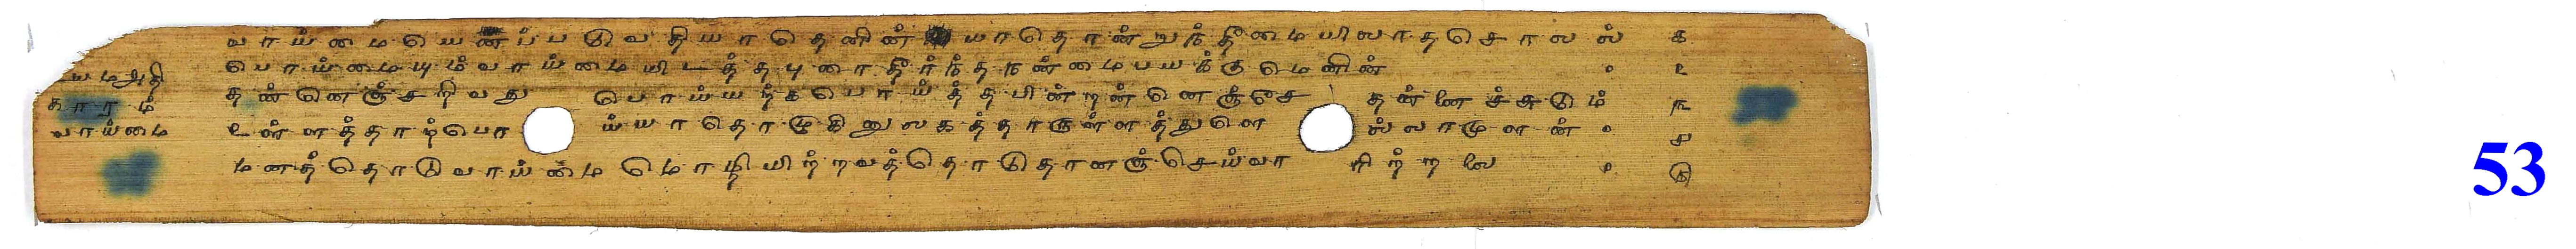 வாய்மையெனப்படுவதியாதெனின் யாதொன்றுந்தீமையிலாதசொலல் ௧
பொய்மையும்வாய்மையிடத்தபுரைதீர்ந்தநன்மைபயக்குமெனின் ௨
தன்னெஞ்சறிவது பொய்யற்கபொய்த்தபின்றன்னெஞ்சே தன்னைச்சுடும் ௩
உள்ளத்தாற்பொ ய்யாதொழுகினுலகத்தாருள்ளத்துளெ ல்லாமுளன் ௪
மனத்தொடுவாய்மைமொழியிற்றவத்தொடுதானஞ்செய்வா ரிற்றலை ௫
யமஅதி
காரம்
வாய்மை
53